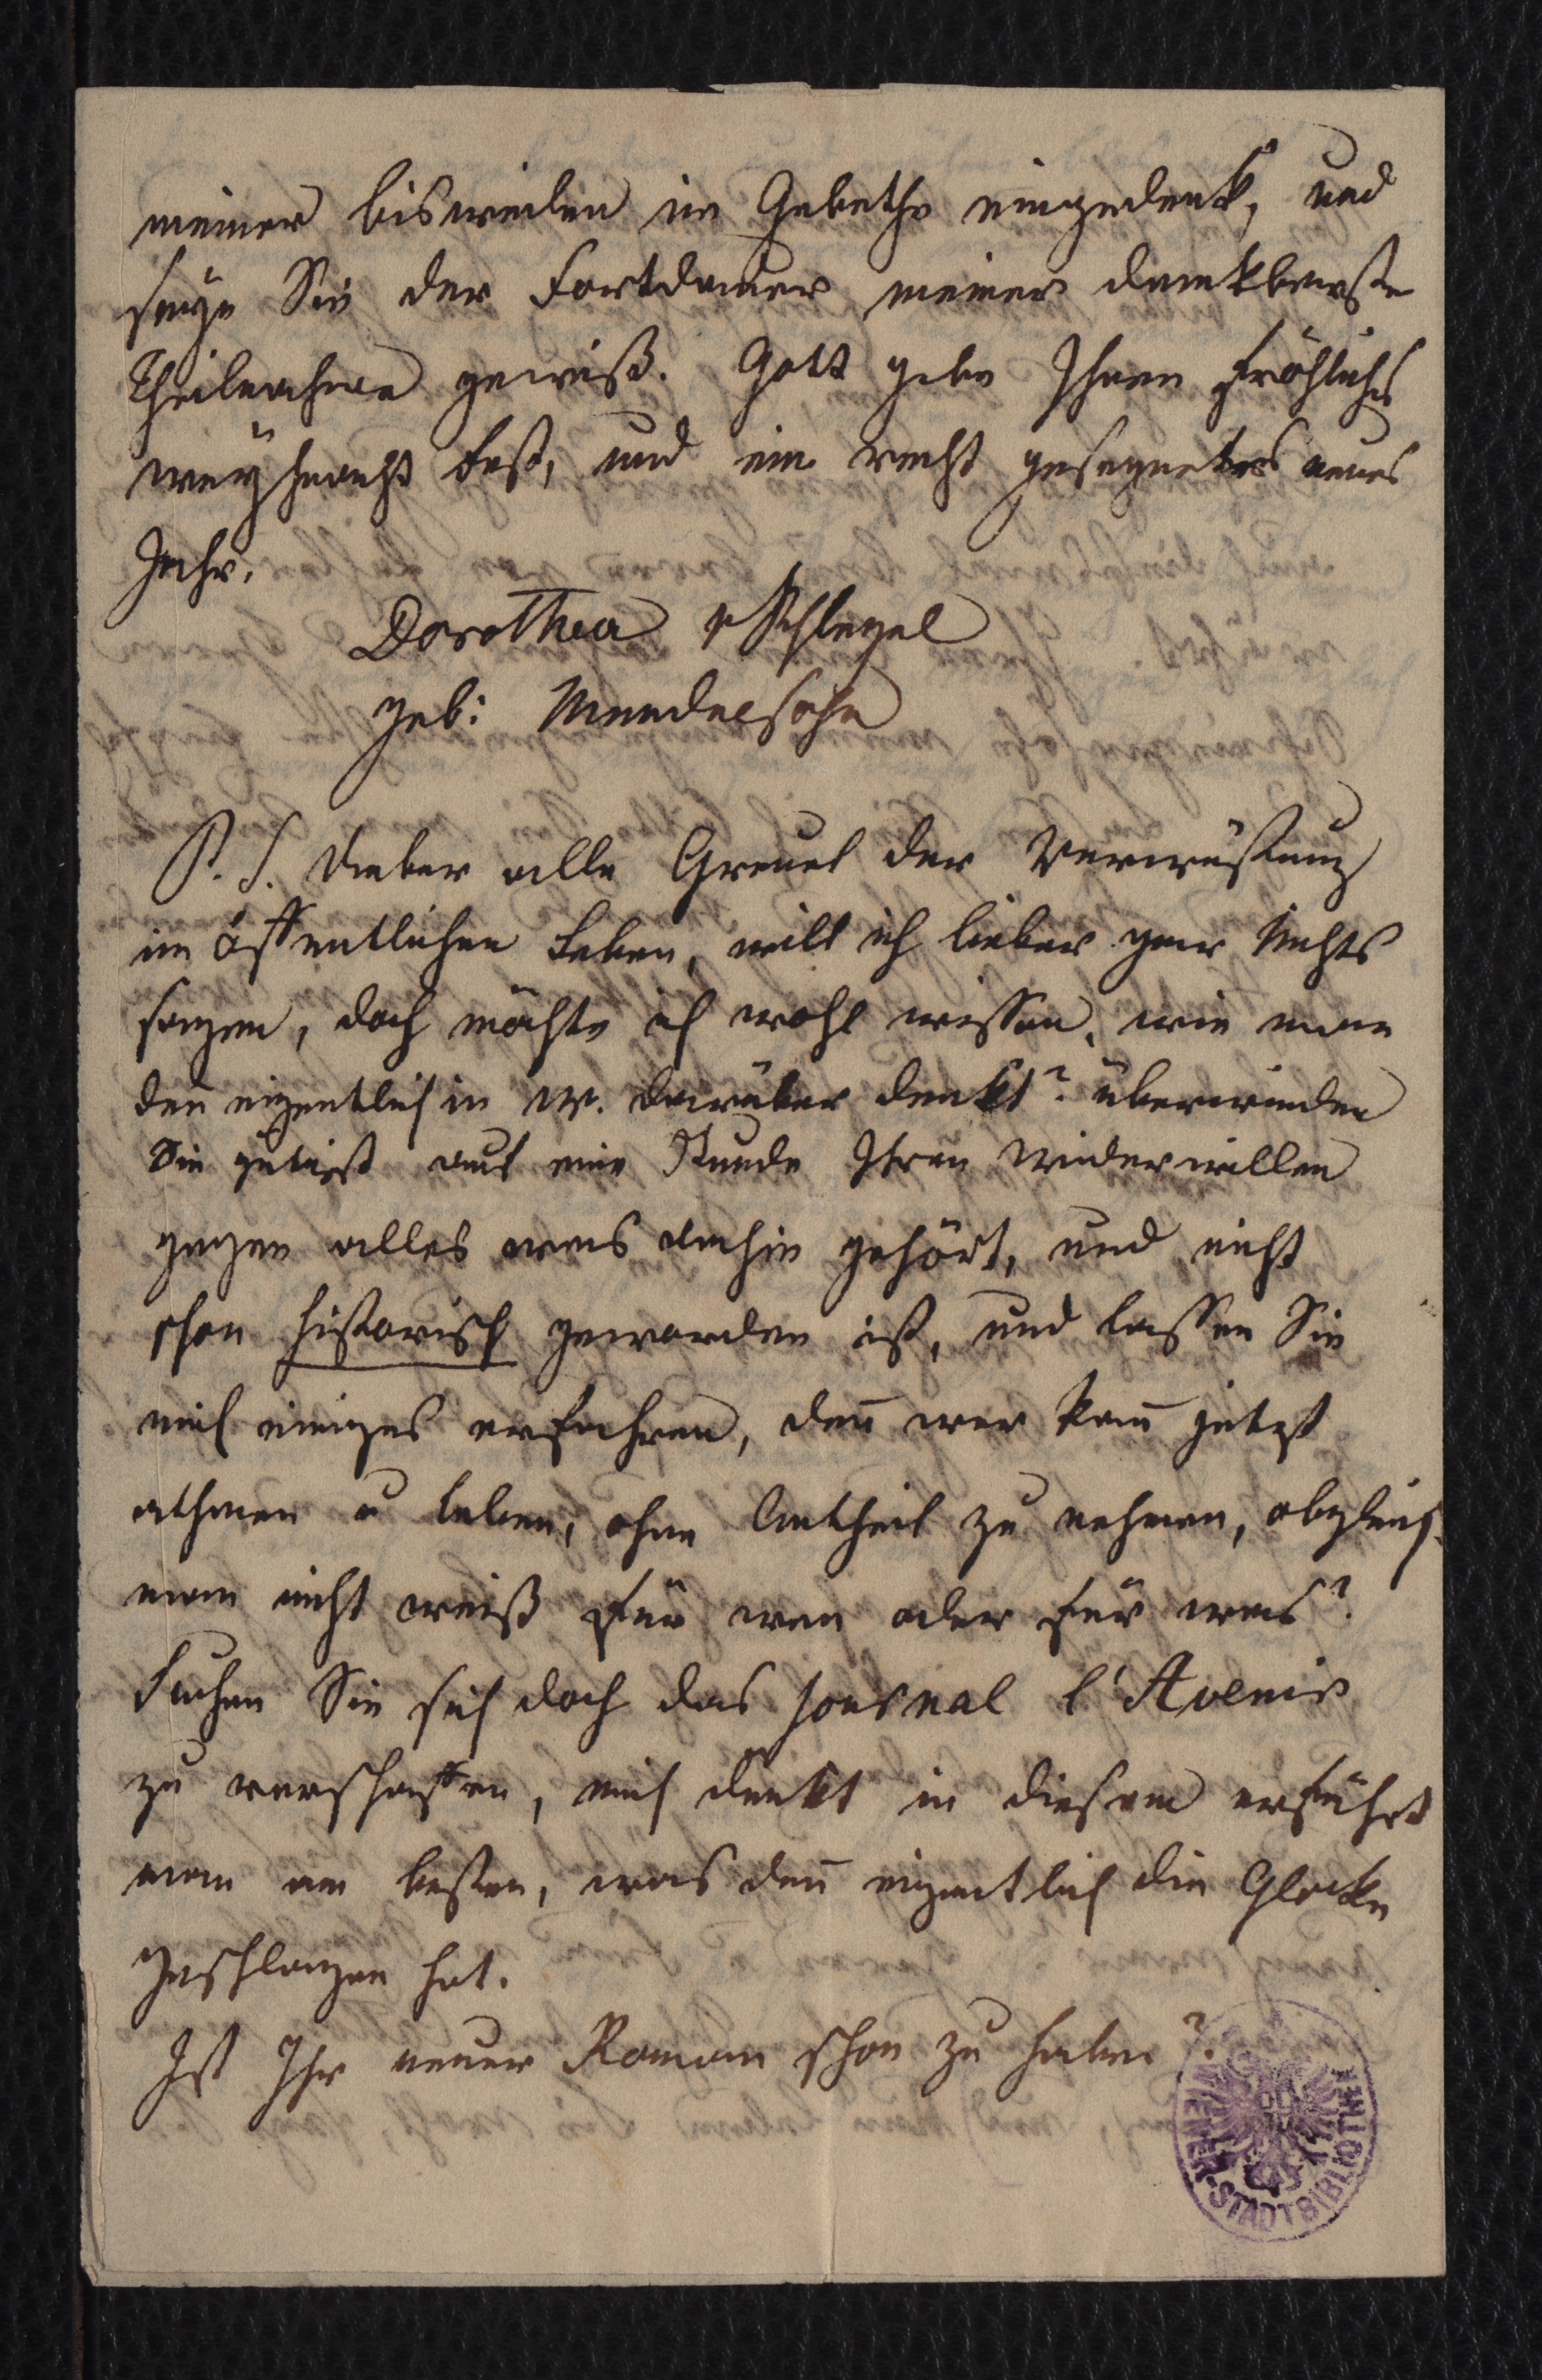 meiner bisweilen im Gebethe eingedenk, und
seyn Sie der Fortdauer meiner dankbarsten
Theilnahme gewiß. Gott gebe Ihnen fröhliches
weyhnacht Fest, und ein recht gesegnetes neues
Jahr.
Dorothea v Schlegel
geb: Mendelsohn
P. S. Ueber alle Greuel der Verwüstung
im öffentlichen Leben, will ich lieber gar Nichts
sagen, doch möchte ich wohl wissen, wie man
den̄ eigentlich in W. darüber denkt? überwinden
Sie gütigst auf eine Stunde Ihren Widerwillen
gegen alles was dahin gehört, und nicht
schon historisch geworden ist, und lassen Sie
mich einiges erfahren, den̄ wer kan̄ jetzt
athmen u leben, ohne Antheil zu nehmen, obgleich
man nicht weiß für wen oder für was?
Suchen Sie sich doch das journal l'Avenir
zu verschaffen, mich deukt in diesem erfährt
man am besten, was den̄ eigentlich die Glocke
geschlagen hat.
Ist Ihr neuer Roman schon zu haben?
WIENER-STADTBIBLIOTHEK